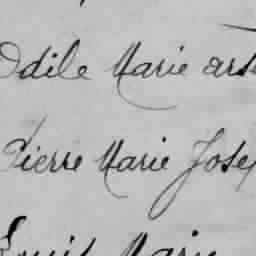 Odile Marie
Pierre Marie Josep
Louis Marie